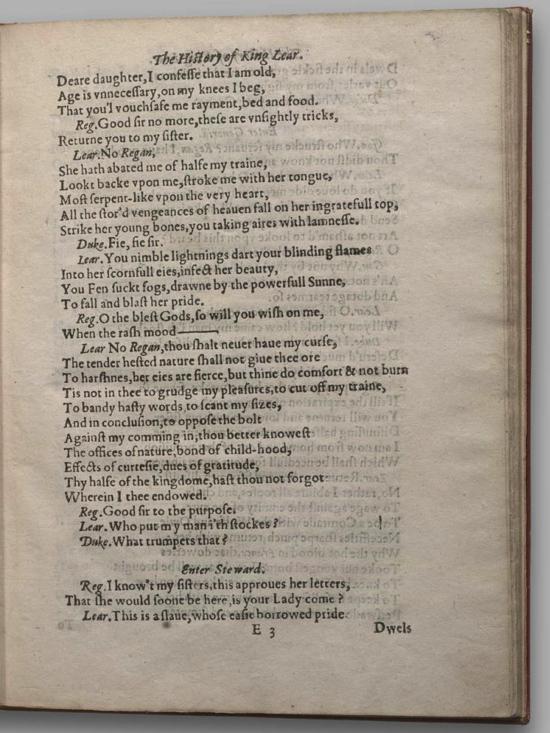 The History of King Lear.
Deare daughter,I confesse that I am old,
Age is vnnecessary,on my knees I beg,
That you'l vouchsafe me rayment,bed and food.
Reg.Good sir no more,these are vnsightly tricks,
Returne you to my sister.
Lear.No Regan,
She hath abated me of halfe my traine,
Lookt backe vpon me,stroke me with her tongue,
Most serpent-like vpon the very heart,
All the stor'd vengeances of heauen fall on her ingratefull top,
Strike her young bones,you taking aires with lamnesse.
Duke.Fie,fie sir.
Lear.You nimble lightnings dart your blinding flames
Into her scornfull eies,infect her beauty,
You Fen suckt fogs,drawne by the powerfull Sunne,
To fall and blast her pride.
Reg.O the blest Gods,so will you wish on me,
When the rash mood———
Lear No Regan,thou shalt neuer haue my curse,
The tender hested nature shall not giue thee ore
To harshnes,her eies are fierce,but thine do comfort & not burn
Tis not in thee to grudge my pleasures,to cut off my traine,
To bandy hasty words,to scant my sizes,
And in conclusion,to oppose the bolt
Against my comming in,thou better knowest
The offices of nature,bond of child-hood,
Effects of curtesie,dues of gratitude,
Thy halfe of the kingdome,hast thou not forgot
Wherein I thee endowed.
Reg.Good sir to the purpose.
Lear.Who put my man i'th stockes?
Duke.What trumpets that?
Enter Steward.
Reg.I know't my sisters,this approues her letters,
That she would soone be here,is your Lady come?
Lear.This is a slaue,whose easie borrowed pride
E 3 Dwels